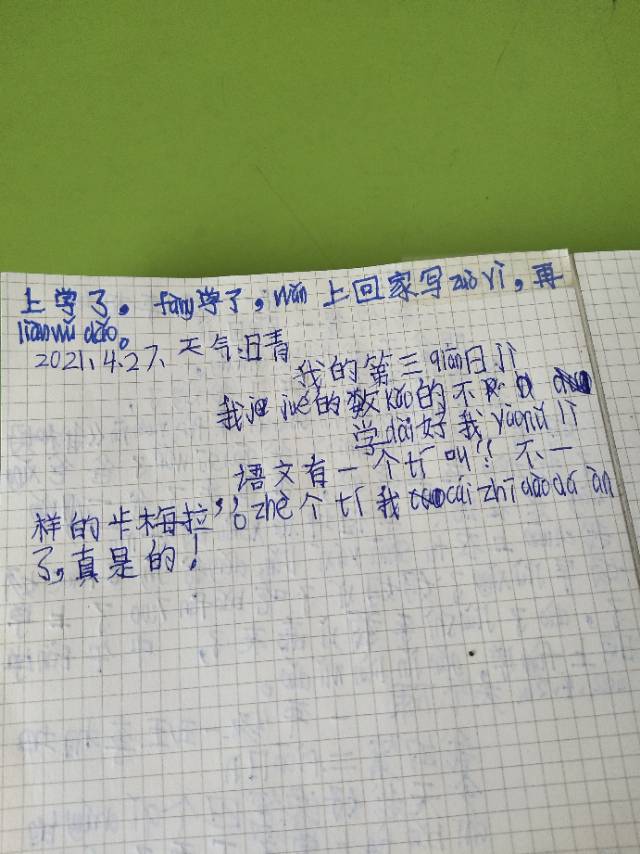 上学了。fàng学了，wǎn上回家写zuò yì，再
liàn wǔ dǎo。
2021.4.27、天气:日青
我的第三qiān日jì
我 jué的数 kǎo的不
学 dài好我 yào nǔ lì
语文有一个tí叫？不一
样的卡梅拉，zhè个tí我 cái zhī dào dá àn
了，真是的！